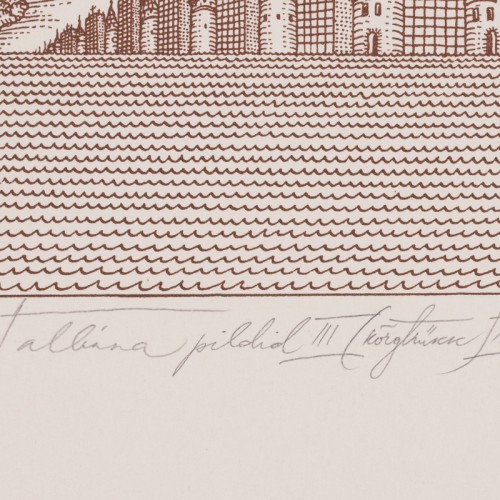 Tallinna pildid III (kõrgtrükk